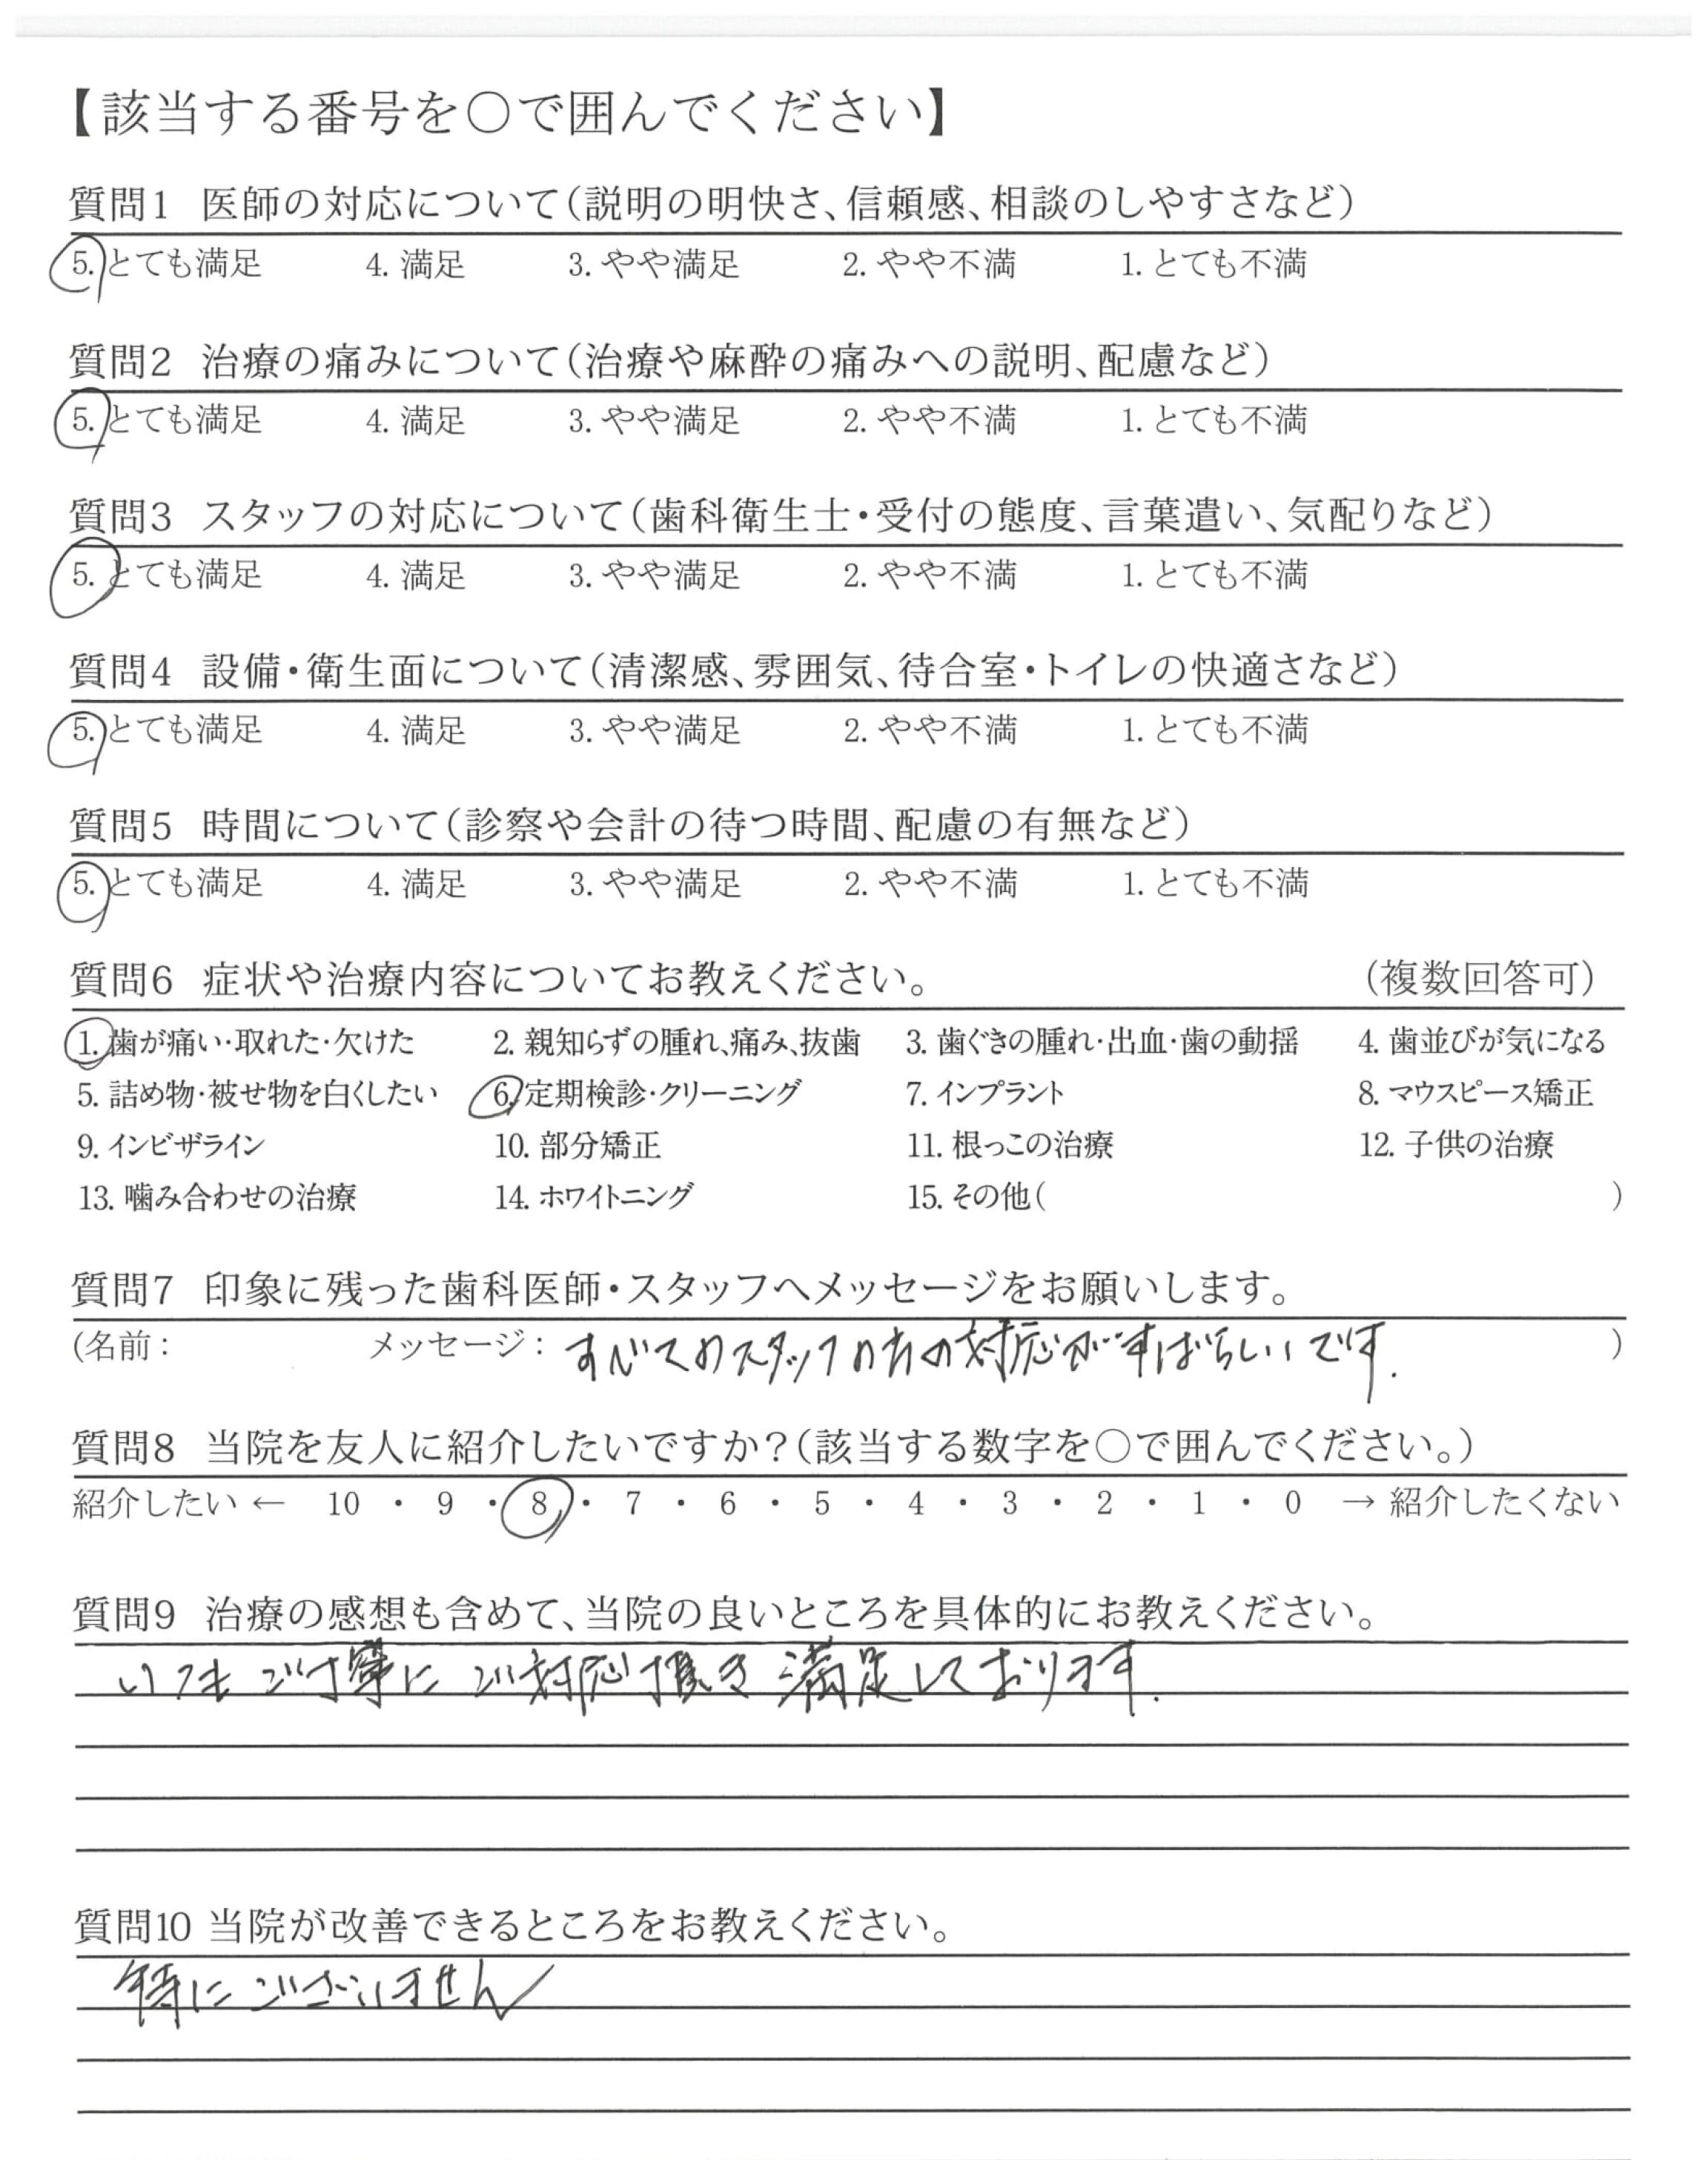 【該当する番号を〇で囲んでください】
質問1 医師の対応について(説明の明快さ、信頼感、相談のしやすさなど)
5. とても満足 4. 満足 3. やや満足 2. やや不満 1. とても不満
質問2 治療の痛みについて(治療や麻酔の痛みへの説明、配慮など)
5. とても満足 4. 満足 3. やや満足 2. やや不満 1. とても不満
質問3 スタッフの対応について(歯科衛生士・受付の態度、言葉遣い、気配りなど)
5. とても満足 4. 満足 3. やや満足 2. やや不満 1. とても不満
質問4 設備・衛生面について(清潔感、雰囲気、待合室・トイレの快適さなど)
5. とても満足 4. 満足 3. やや満足 2. やや不満 1. とても不満
質問5 時間について(診察や会計の待つ時間、配慮の有無など)
5. とても満足 4. 満足 3. やや満足 2. やや不満 1. とても不満
質問6 症状や治療内容についてお教えください。 (複数回答可)
1. 歯が痛い・取れた・欠けた 2. 親知らずの腫れ、痛み、抜歯 3. 歯ぐきの腫れ・出血・歯の動揺 4. 歯並びが気になる
5. 詰め物・被せ物を白くしたい 6. 定期検診・クリーニング 7. インプラント 8. マウスピース矯正
9. インビザライン 10. 部分矯正 11. 根っこの治療 12. 子供の治療
13. 噛み合わせの治療 14. ホワイトニング 15. その他( )
質問7 印象に残った歯科医師・スタッフへメッセージをお願いします。
(名前: メッセージ: すべてのスタッフの方の対応がすばらしいです. )
質問8 当院を友人に紹介したいですか?(該当する数字を〇で囲んでください。)
紹介したい ← 10 ・ 9 ・ 8 ・ 7 ・ 6 ・ 5 ・ 4 ・ 3 ・ 2 ・ 1 ・ 0 → 紹介したくない
質問9 治療の感想も含めて、当院の良いところを具体的にお教えください。
いつもご丁寧にご対応頂き満足しております.
質問10 当院が改善できるところをお教えください。
特にございません